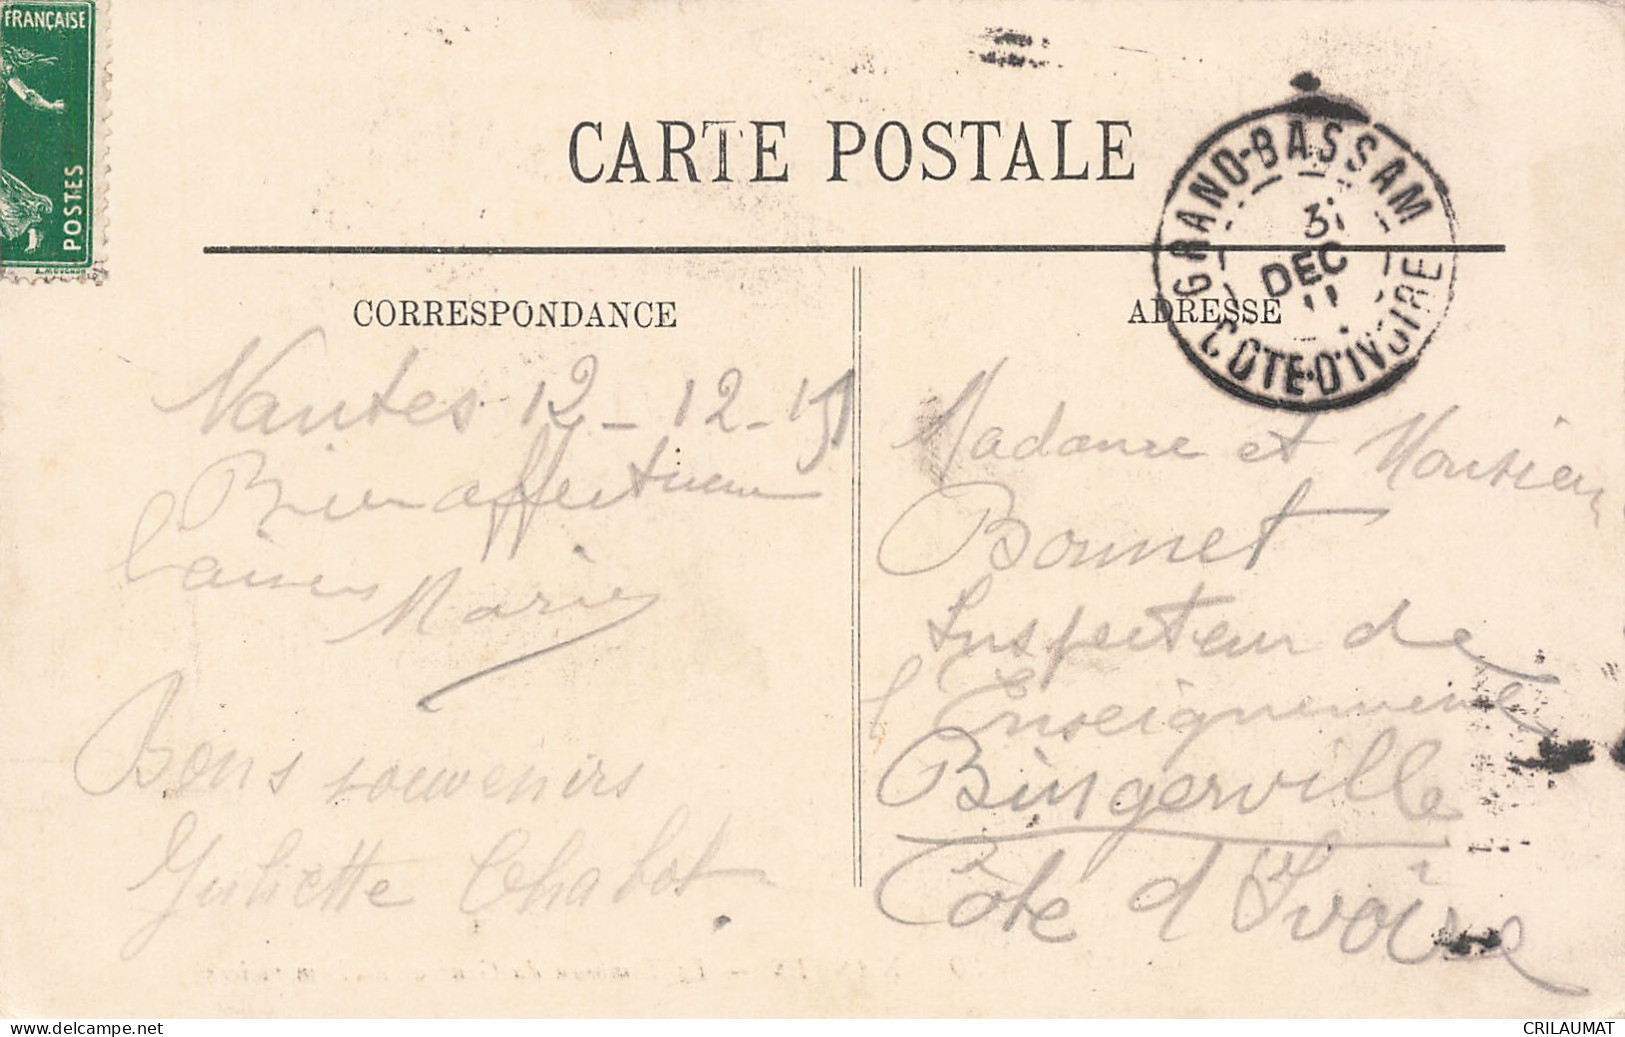 FRANÇAISE
POSTES
CARTE POSTALE
GRAND-BASSAM
31
DEC
11
COTE-D'IVOIRE
CORRESPONDANCE
Nantes 12 - 12 - 11
Bien affectueux
baisers
Marie
Bons souvenirs
Juliette Chabot
ADRESSE
Madame et Monsieur
Bonnet
Inspecteur de
l'Enseignement
Bingerville
Côte d'Ivoire
CRILAUMAT